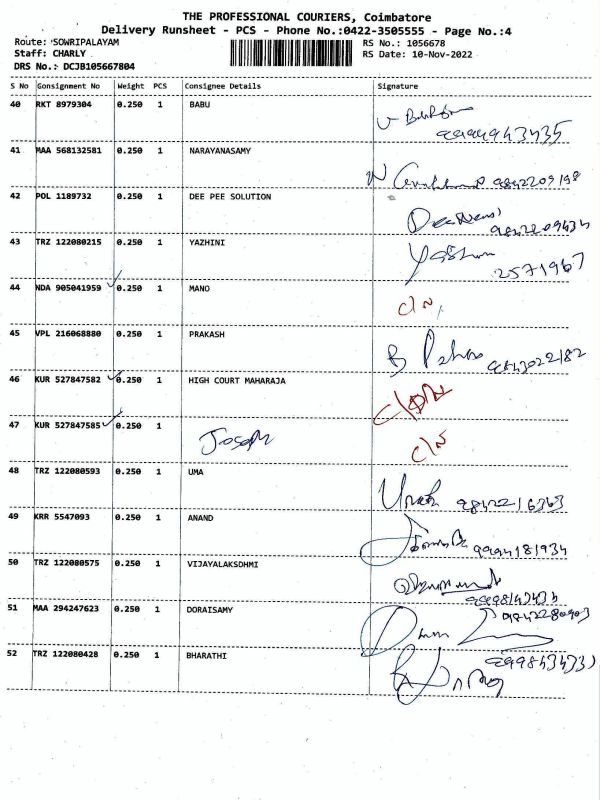 THE PROFESSIONAL COURIERS, Coimbatore
Delivery Runsheet - PCS - Phone No.:0422-3505555 - Page No.:4
Route: SOWRIPALAYAM
RS No.: 1056678
Staff: CHARLY
RS Date: 10-Nov-2022
DRS No.: DCJB105667804
S No Consignment No Weight PCS Consignee Details Signature
40 RKT 8979304 0.250 1 BABU
41 MAA 568132581 0.250 1 NARAYANASAMY
9842209198
42 POL 1189732 0.250 1 DEE PEE SOLUTION
9842209434
43 TRZ 122080215 0.250 1 YAZHINI
2571967
44 NDA 905041959 0.250 1 MANO C/N
45 VPL 216068880 0.250 1 PRAKASH
9843022182
46 KUR 527847582 0.250 1 HIGH COURT MAHARAJA
47 KUR 527847585 0.250 1 Joseph C/N
48 TRZ 122080593 0.250 1 UMA
9842216363
49 KRR 5547093 0.250 1 ANAND
9994181934
50 TRZ 122080575 0.250 1 VIJAYALAKSDHMI
51 MAA 294247623 0.250 1 DORAISAMY
9842280903
52 TRZ 122080428 0.250 1 BHARATHI